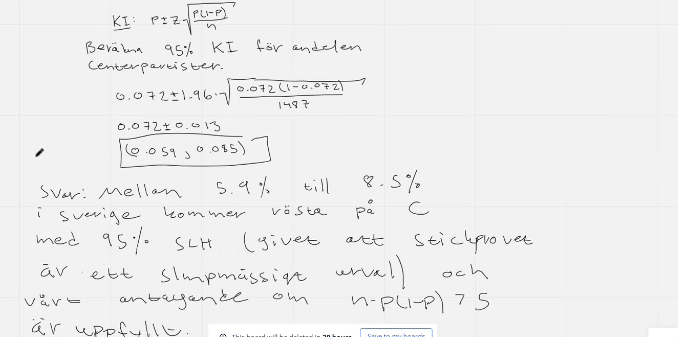 KI: p±z√p(1-p)/n
Beräkna 95% KI för andelen
Centerpartister.
0.072±1.96·√0.072(1-0.072)/1487
0.072±0.013
(0.059, 0.085)
Svar: Mellan 5.9% till 8.5%
i sverige kommer rösta på C
med 95% SLH (givet att stickprovet
är ett slmpmässigt urval) och
vårt antagande om n·p(1-p)>5
är uppfyllt.
This board will be deleted in 20 hours Save to my boards